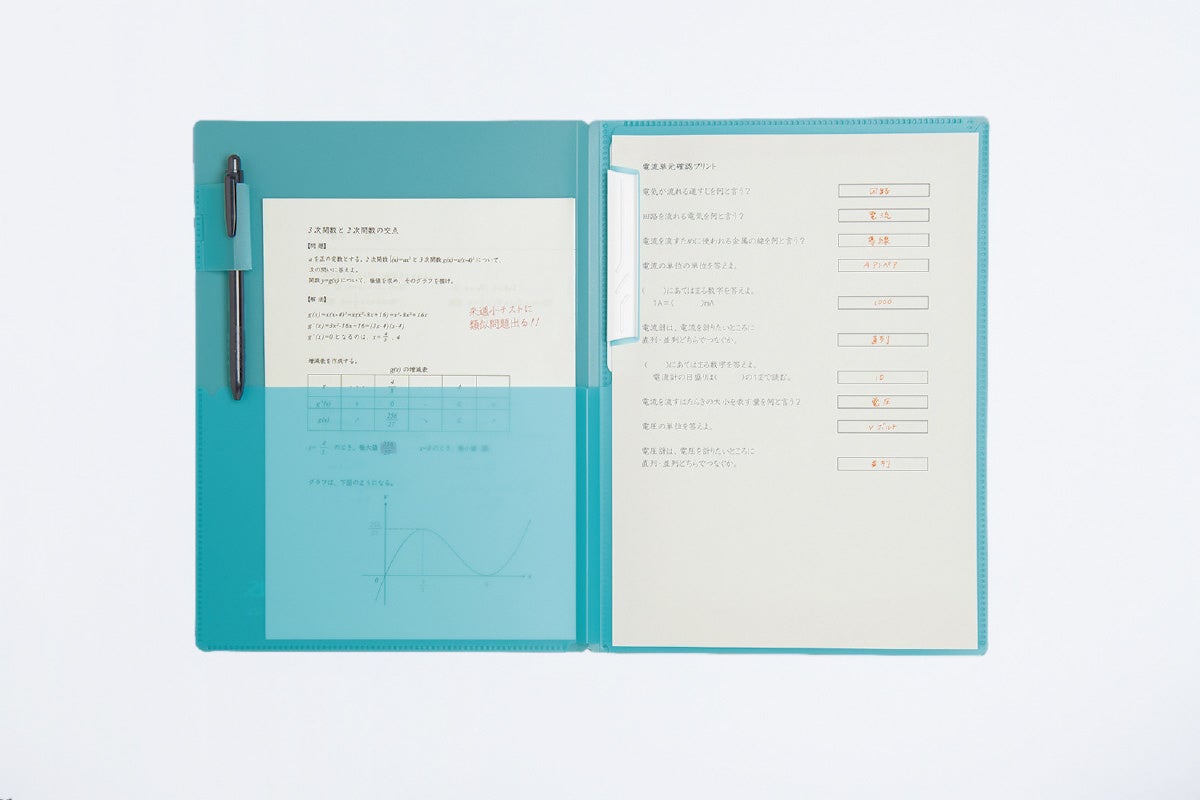 3次関数と2次関数の交点
【問題】
aを正の定数とする。2次関数f(x)=ax²と3次関数g(x)=x(x-4)²について、
次の問いに答えよ。
関数y=g(x)について、極値を求め、そのグラフを描け。
【解法】
g(x)=x(x-4)²=x(x²-8x+16)=x³-8x²+16x
g'(x)=3x²-16x+16=(3x-4)(x-4)
g'(x)=0となるのは、x=4/3, 4
来週小テストに
類似問題出る!!
増減表を作成する。
g(x)の増減表
x 4/3 4
g'(x) + 0 - 0 +
g(x) 256/27
x=4/3 のとき、極大値 256/27 のとき、極小値
グラフは、下図のようになる。
y
256/27
0 4/3 4 x
電流単元確認プリント
電気が流れる道すじを何と言う? 回路
回路を流れる電気を何と言う? 電流
電流を流すために使われる金属の線を何と言う? 導線
電流の単位の単位を答えよ。 A アンペア
( )にあてはまる数字を答えよ。
1A=( )mA 1000
電流計は、電流を計りたいところに
直列・並列どちらでつなぐか。 直列
( )にあてはまる数字を答えよ。
電流計の目盛りは( )の1まで読む。 10
電流を流すはたらきの大小を表す量を何と言う? 電圧
電圧の単位を答えよ。 V ボルト
電圧計は、電圧を計りたいところに
直列・並列どちらでつなぐか。 並列